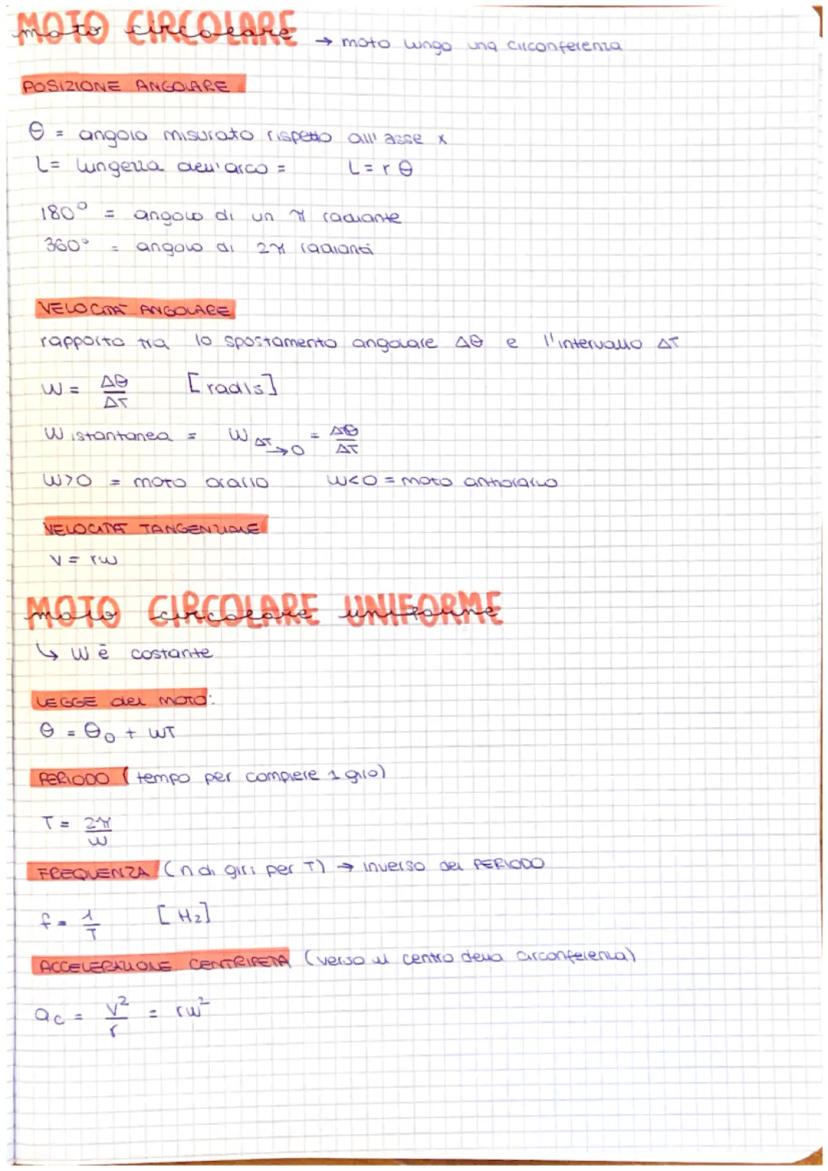 MOTO CIRCOLARE → moto lungo una circonferenza
POSIZIONE ANGOLARE
θ = angolo misurato rispetto all'asse x
L = lungezza dell'arco = L = r θ
180° = angolo di un π radiante
360° = angolo di 2π radianti
VELOCITA' ANGOLARE
rapporto tra lo spostamento angolare Δθ e l'intervallo ΔT
W = Δθ/ΔT [rad/s]
W istantanea = W ΔT→0 = Δθ/ΔT
W>0 = moto orario W<0 = moto antiorario
VELOCITA' TANGENZIALE
V = rw
MOTO CIRCOLARE UNIFORME
↳ W è costante
LEGGE del MOTO:
θ = θ₀ + WT
PERIODO (tempo per compiere 1 giro)
T = 2π/W
FREQUENZA (n di giri per T) → inverso del PERIODO
f = 1/T [Hz]
ACCELERAZIONE CENTRIPETA (verso il centro della circonferenza)
ac = V²/r = rw²